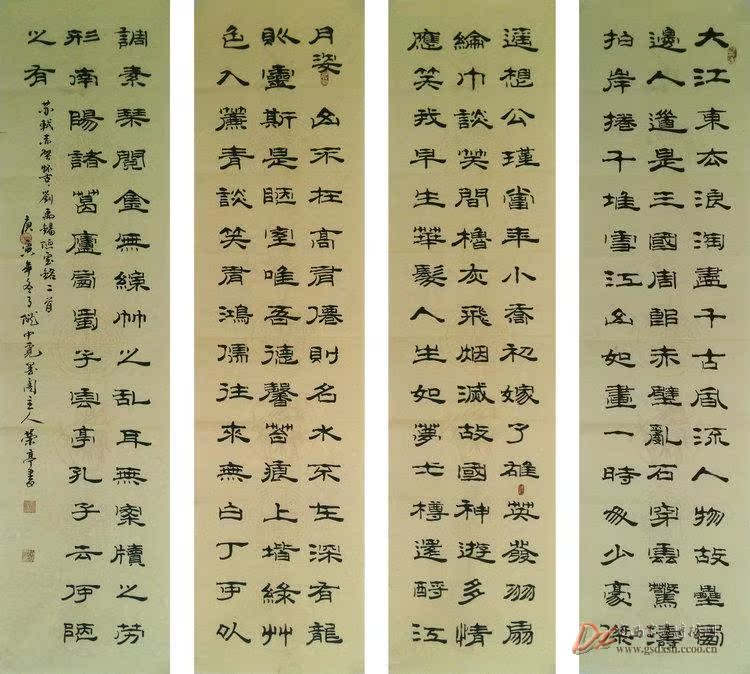 大江東去浪淘盡千古風流人物故壘西
邊人道是三國周郎赤壁亂石穿雲驚濤
拍岸捲千堆雪江山如畫一時多少豪傑
遥想公瑾當年小喬初嫁了雄英發羽扇
綸巾談笑間櫓灰飛烟滅故國神遊多情
應笑我早生華髮人生如夢弌樽還酹江
月姿山不在高有僊則名水不在深有龍
則靈斯是陋室唯吾德馨苔痕上堦綠艸
色入簾青談笑有鴻儒往來無白丁可以
調素琴閱金無絲竹之乱耳無案牘之劳
形南陽諸葛廬西蜀子雲亭孔子云何陋
之有
蘇軾赤壁懷古劉禹錫陋室銘二首
庚寅年冬月隴中墨閣主人榮亭書
www.gsdxsh.ccoo.cn